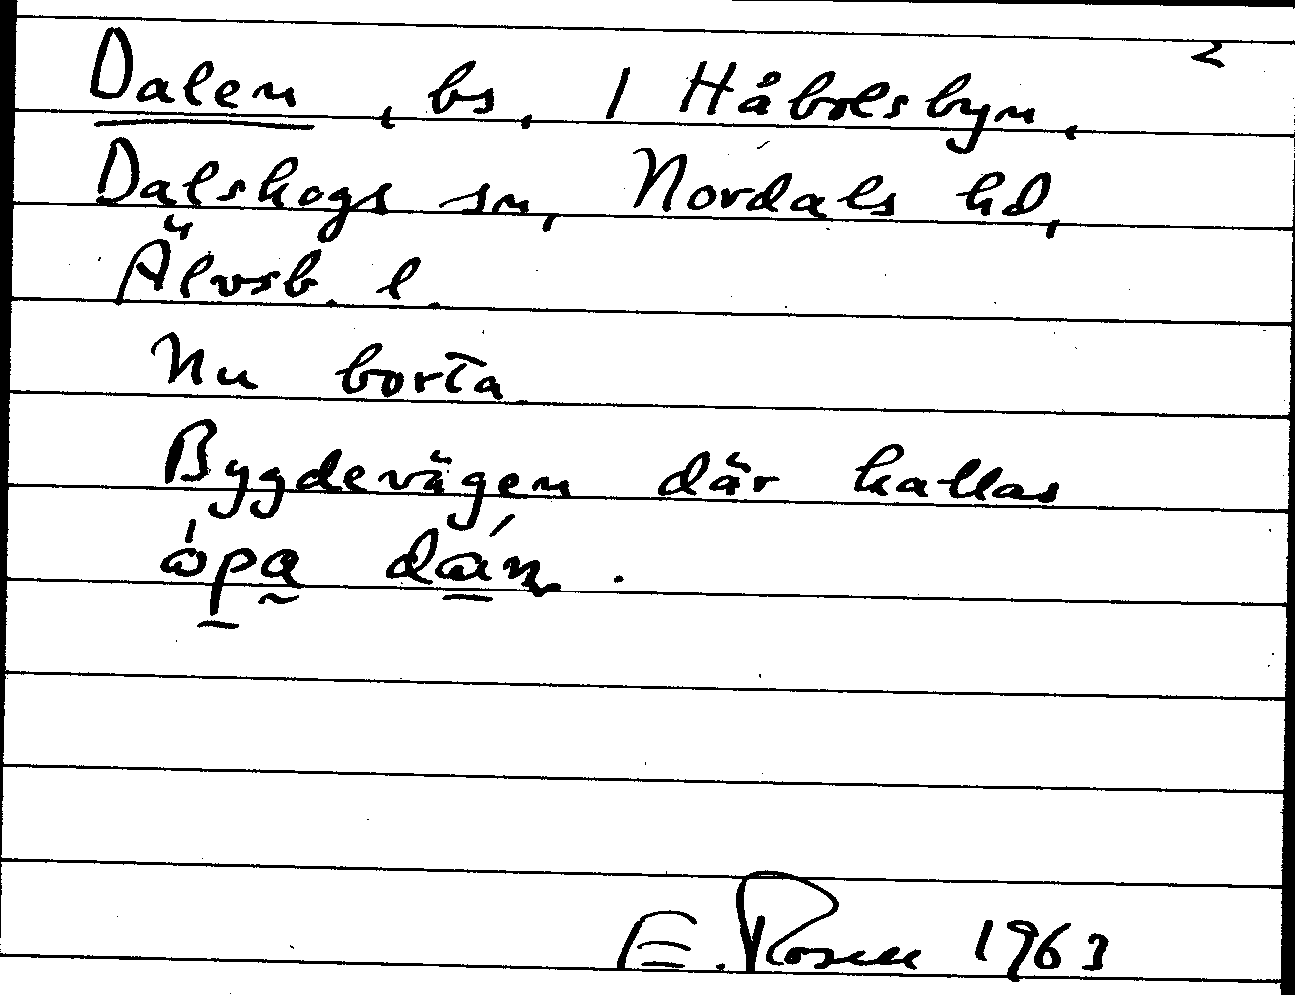 2
Dalen, bs, 1 Håbolsbyn,
Dalskogs sn, Nordals hd,
Älvsb. l.
Nu borta.
Bygdevägen där kallas
E. Rosell 1963